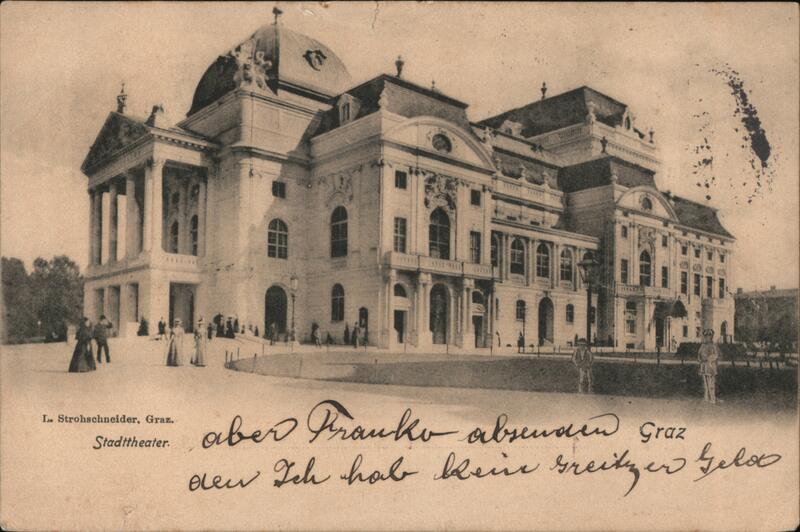 L. Strohschneider, Graz.
Stadttheater.
Graz
aber Franko absenden
den Ich hab kein Greitzer Geld